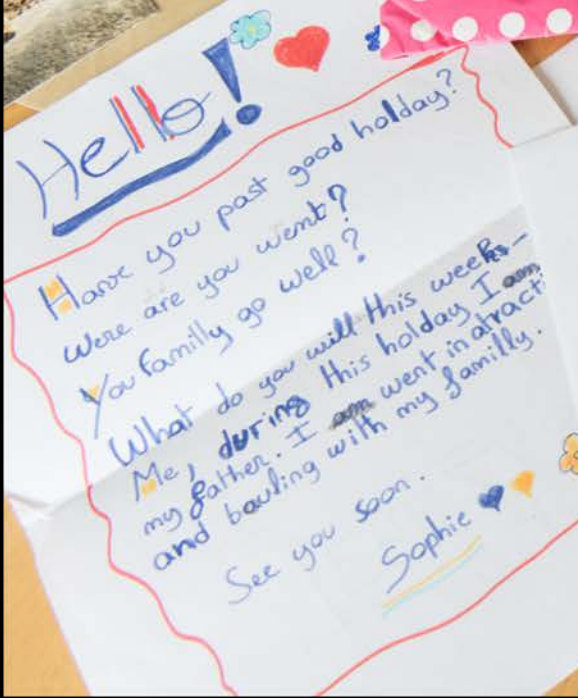 Hello!
Have you past good holday?
Were are you went?
You familly go well?
What do you will this week-
Me, during this holday I am
my father. I went in atract
and bauling with my familly.
See you soon.
Sophie